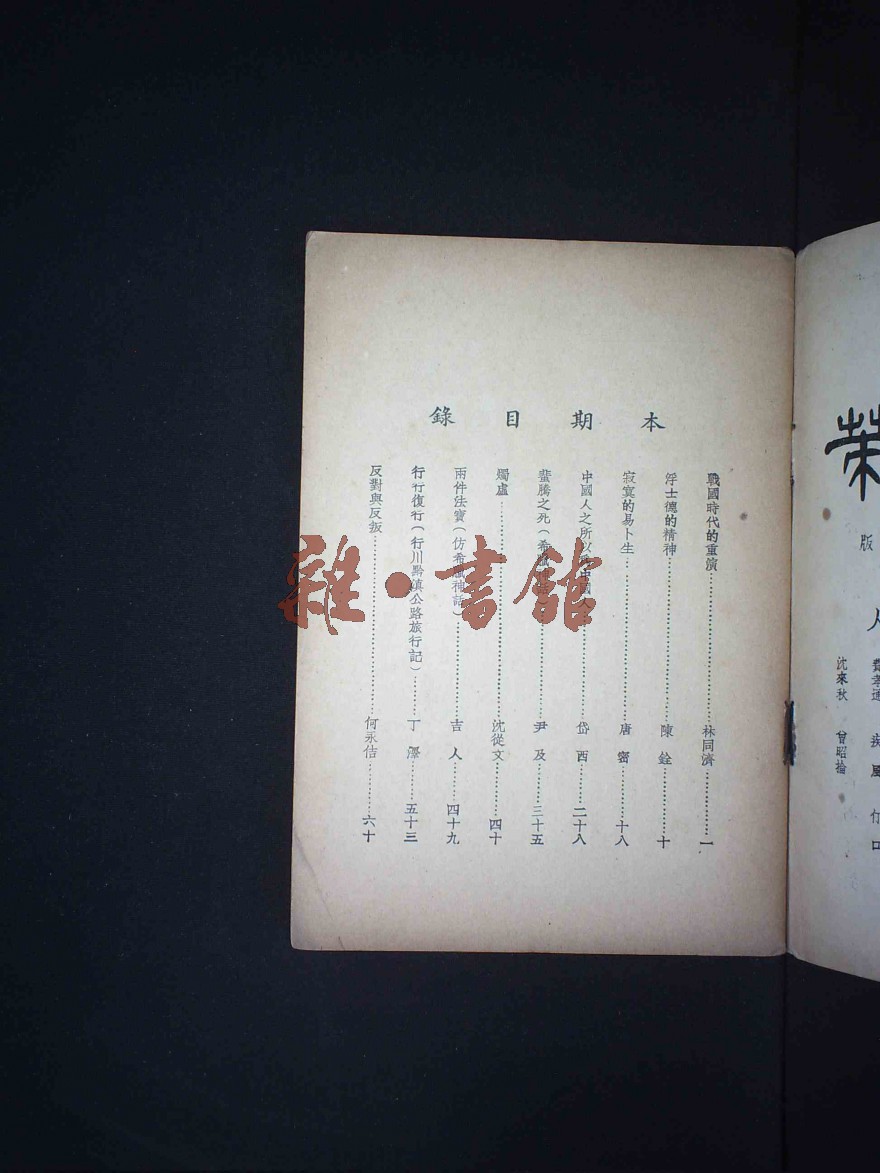 本期目錄
戰國時代的重演……林同濟……一
浮士德的精神……陳銓……十
寂寞的易卜生……唐密……十八
中國人之所以中國人……岱西……二十八
螿騰之死(希臘神話)……尹及……三十五
燭虛……沈從文……四十
兩件法寶(仿希臘神話)……吉人……四十九
行行復行行(行川黔滇公路旅行記)……丁澤……五十三
反對與反叛……何永佶……六十
雜·書館
版
人
費孝通 疾風 竹口
沈來秋 曾昭掄